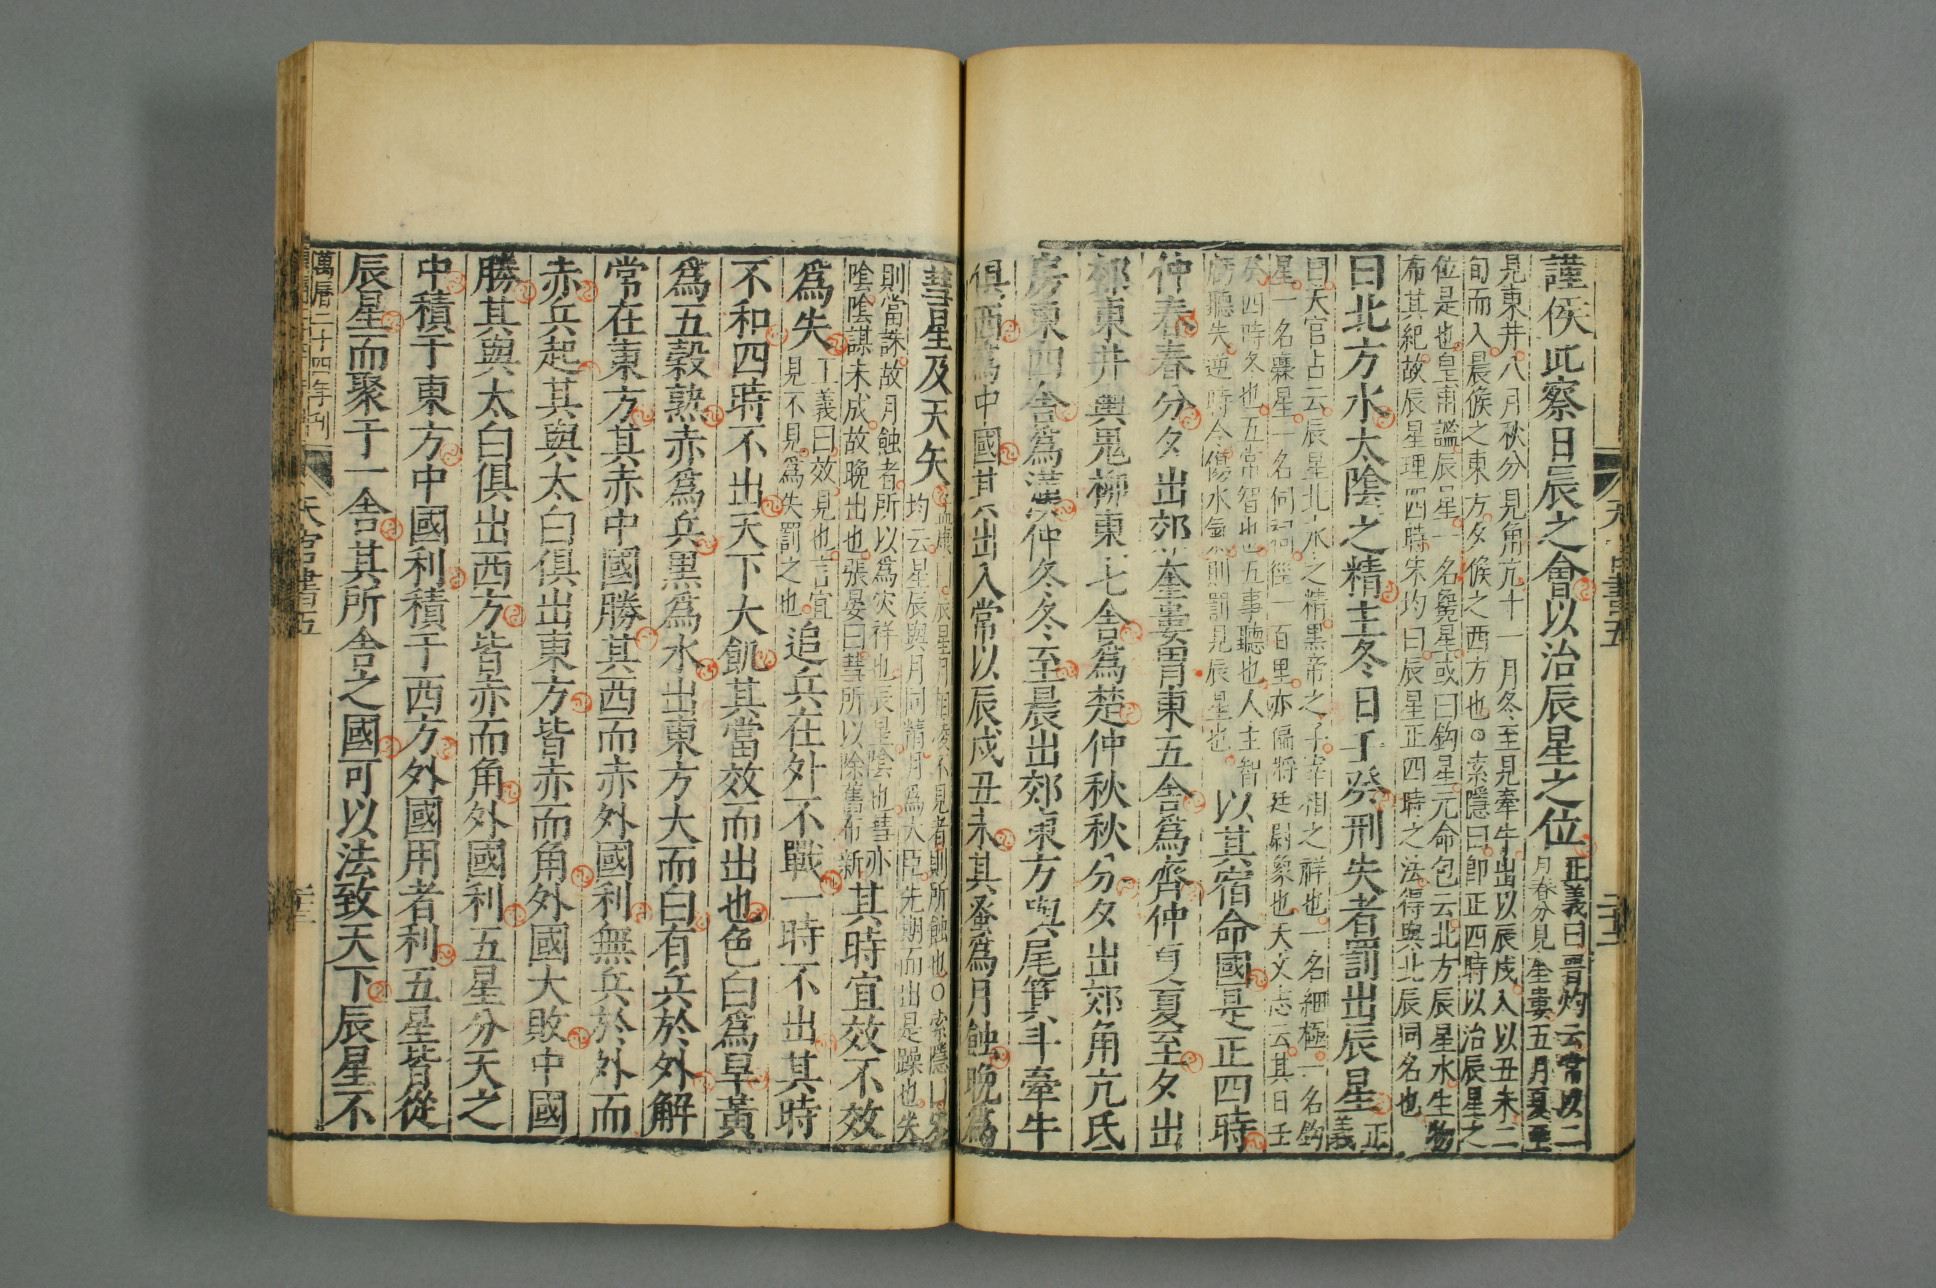 謹侯此察日辰之會以治辰星之位正義曰晋灼云常以二
月春分見奎婁五月夏至
見東井八月秋分見角亢十一月冬至見牽牛出以辰戌入以丑未二
旬而入晨候之東方夕候之西方也○索隱曰即正四時以治辰星之
位是也皇甫謐辰星一名毚星或曰鈎星元命包云北方辰星水生物
布其紀故辰星理四時宋均曰辰星正四時之法得與北辰同名也
曰北方水太陰之精主冬日壬癸刑失者罰出辰星正
義
曰天官占云辰星北水之精黑帝之子宰相之祥也一名細極一名鈎
星一名爨星一名伺祠徑一百里亦偏將廷尉象也天文志云其日壬
癸四時冬也五常智也五事聽也人主智
虧聽失逆時令傷水氣則罰見辰星也以其宿命國是正四時
仲春春分夕出郊奎婁胃東五舍爲齊仲夏夏至夕出
郊東井輿鬼柳東七舍爲楚仲秋秋分夕出郊角亢氐
房東四舍爲漢仲冬冬至晨出郊東方與尾箕斗牽牛
俱西爲中國其出入常以辰戌丑未其蚤爲月蝕晚爲
彗星及天矢
均云星辰與月同精月爲大臣先期而出是躁也失
則當誅故月蝕者所以為灾祥也辰星陰也彗亦
陰陰謀未成故晚出也張晏曰彗所以除舊布新其時宜效不效
爲失正義曰效見也言宜
見不見為失罰之也追兵在外不戰一時不出其時
不和四時不出天下大飢其當效而出也色白爲旱黃
爲五穀熟赤爲兵黑爲水出東方大而白有兵於外解
常在東方其赤中國勝其西而赤外國利無兵於外而
赤兵起其與太白俱出東方皆赤而角外國大敗中國
勝其與太白俱出西方皆赤而角外國利五星分天之
中積于東方中國利積于西方外國用者利五星皆從
辰星而聚于一舍其所舍之國可以法致天下辰星不
萬曆二十四年刊
天官書五